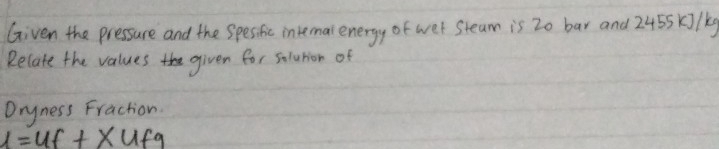 Given the pressure and the Spesific internal energy of wet Steam is 20 bar and 2455 KJ/kg
Relate the values the given for solution of
Dryness Fraction.
u = uf + x ufg